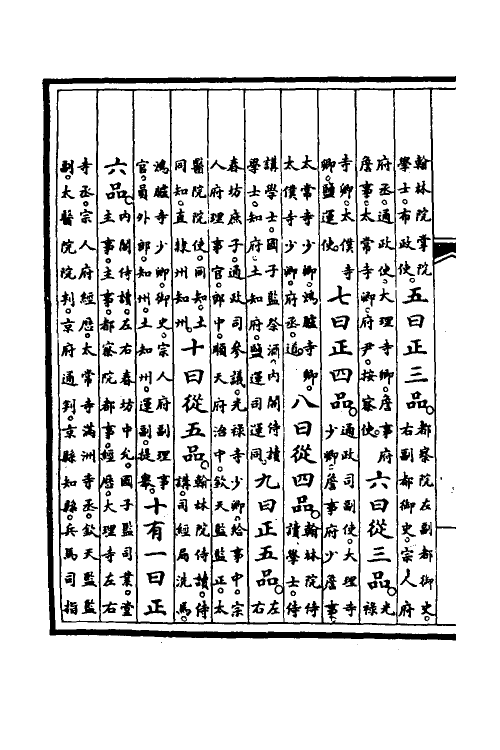 翰林院掌院
學士。布政使。
五曰正三品。
都察院左副都御史。
右副都御史。宗人府
府丞。通政使。大理寺卿。詹事府
詹事。太常寺卿。府尹。按察使。
六曰從三品。
光
祿
寺卿。太僕寺
卿。鹽運使。
七曰正四品。
通政司副使。大理寺
少卿。詹事府少詹事。
太常寺少卿。鴻臚寺卿。
太僕寺少卿。府丞。道。
八曰從四品。
翰林院侍
讀學士。侍
講學士。國子監祭酒。內閣侍讀
學士。知府。土知府。鹽運司運同。
九曰正五品。
左
右
春坊庶子。通政司參議。光祿寺少卿。給事中。宗
人府理事官。郎中。順天府治中。欽天監監正。太
醫院院使。同知。土
同知。直隸州知州。
十曰從五品。
翰林院侍讀。侍
講。司經局洗馬。
鴻臚寺少卿。御史。宗人府副理事
官。員外郎。知州。土知州。運副。提舉。
十有一曰正
六品。
內閣侍讀。左右春坊中允。國子監司業。堂
主事。主事。都察院都事。經厯。大理寺左右
寺丞。宗人府經厯。太常寺滿洲寺丞。欽天監監
副。太醫院院判。京府通判。京縣知縣。兵馬司指